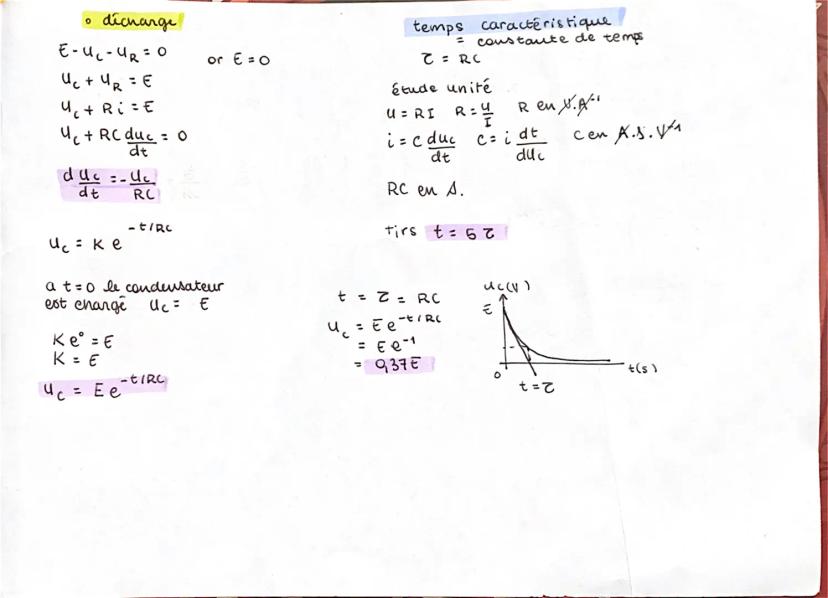 • décharge
E - uc - uR = 0   or E = 0
uc + uR = E
uc + Ri = E
uc + RC duc/dt = 0
duc/dt = - uc/RC
uc = K e^-t/RC
a t=0 le condensateur
est chargé uc = E
Ke° = E
K = E
uc = E e^-t/RC
temps caractéristique
= constante de temps
τ = RC
étude unité
u = RI   R = u/I   R en V.A⁻¹
i = C duc/dt   C = i dt/duc   C en A.s.V⁻¹
RC en s.
t = 5 τ
t = τ = RC
uc = E e^-t/RC
= E e⁻¹
= 0,37E
uc(V)
E
0
t = τ
t(s)